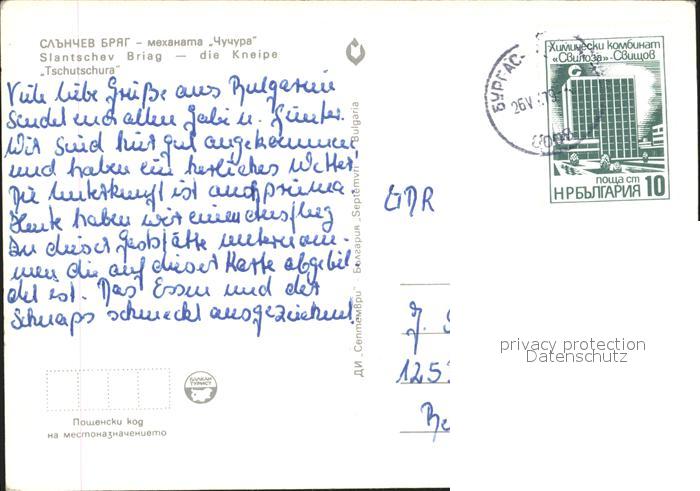 СЛЪНЧЕВ БРЯГ - механата „Чучура"
Slantschev Briag — die Kneipe
„Tschutschura"
Viele liebe Grüße aus Bulgarien
sendet euch allen Gabi u. Günter.
Wir sind hier gut angekommen
und haben ein herrliches Wetter.
Die Unterkunft ist auch prima.
Heute haben wir einen Ausflug
zu dieser Gaststätte unternom-
men die auf dieser Karte abgebil-
det ist. Das Essen und der
Schnaps schmeckt ausgezeichnet.
ДИ „Септември" - България „Septemvri" - Bulgaria
БАЛКАН
ТУРИСТ
Пощенски код
на местоназначението
БУРГАС
26.V.79
Химически комбинат
«Свилоза»-Свищов
поща ст
НР БЪЛГАРИЯ 10
GDR
J.
125
Be
privacy protection
Datenschutz